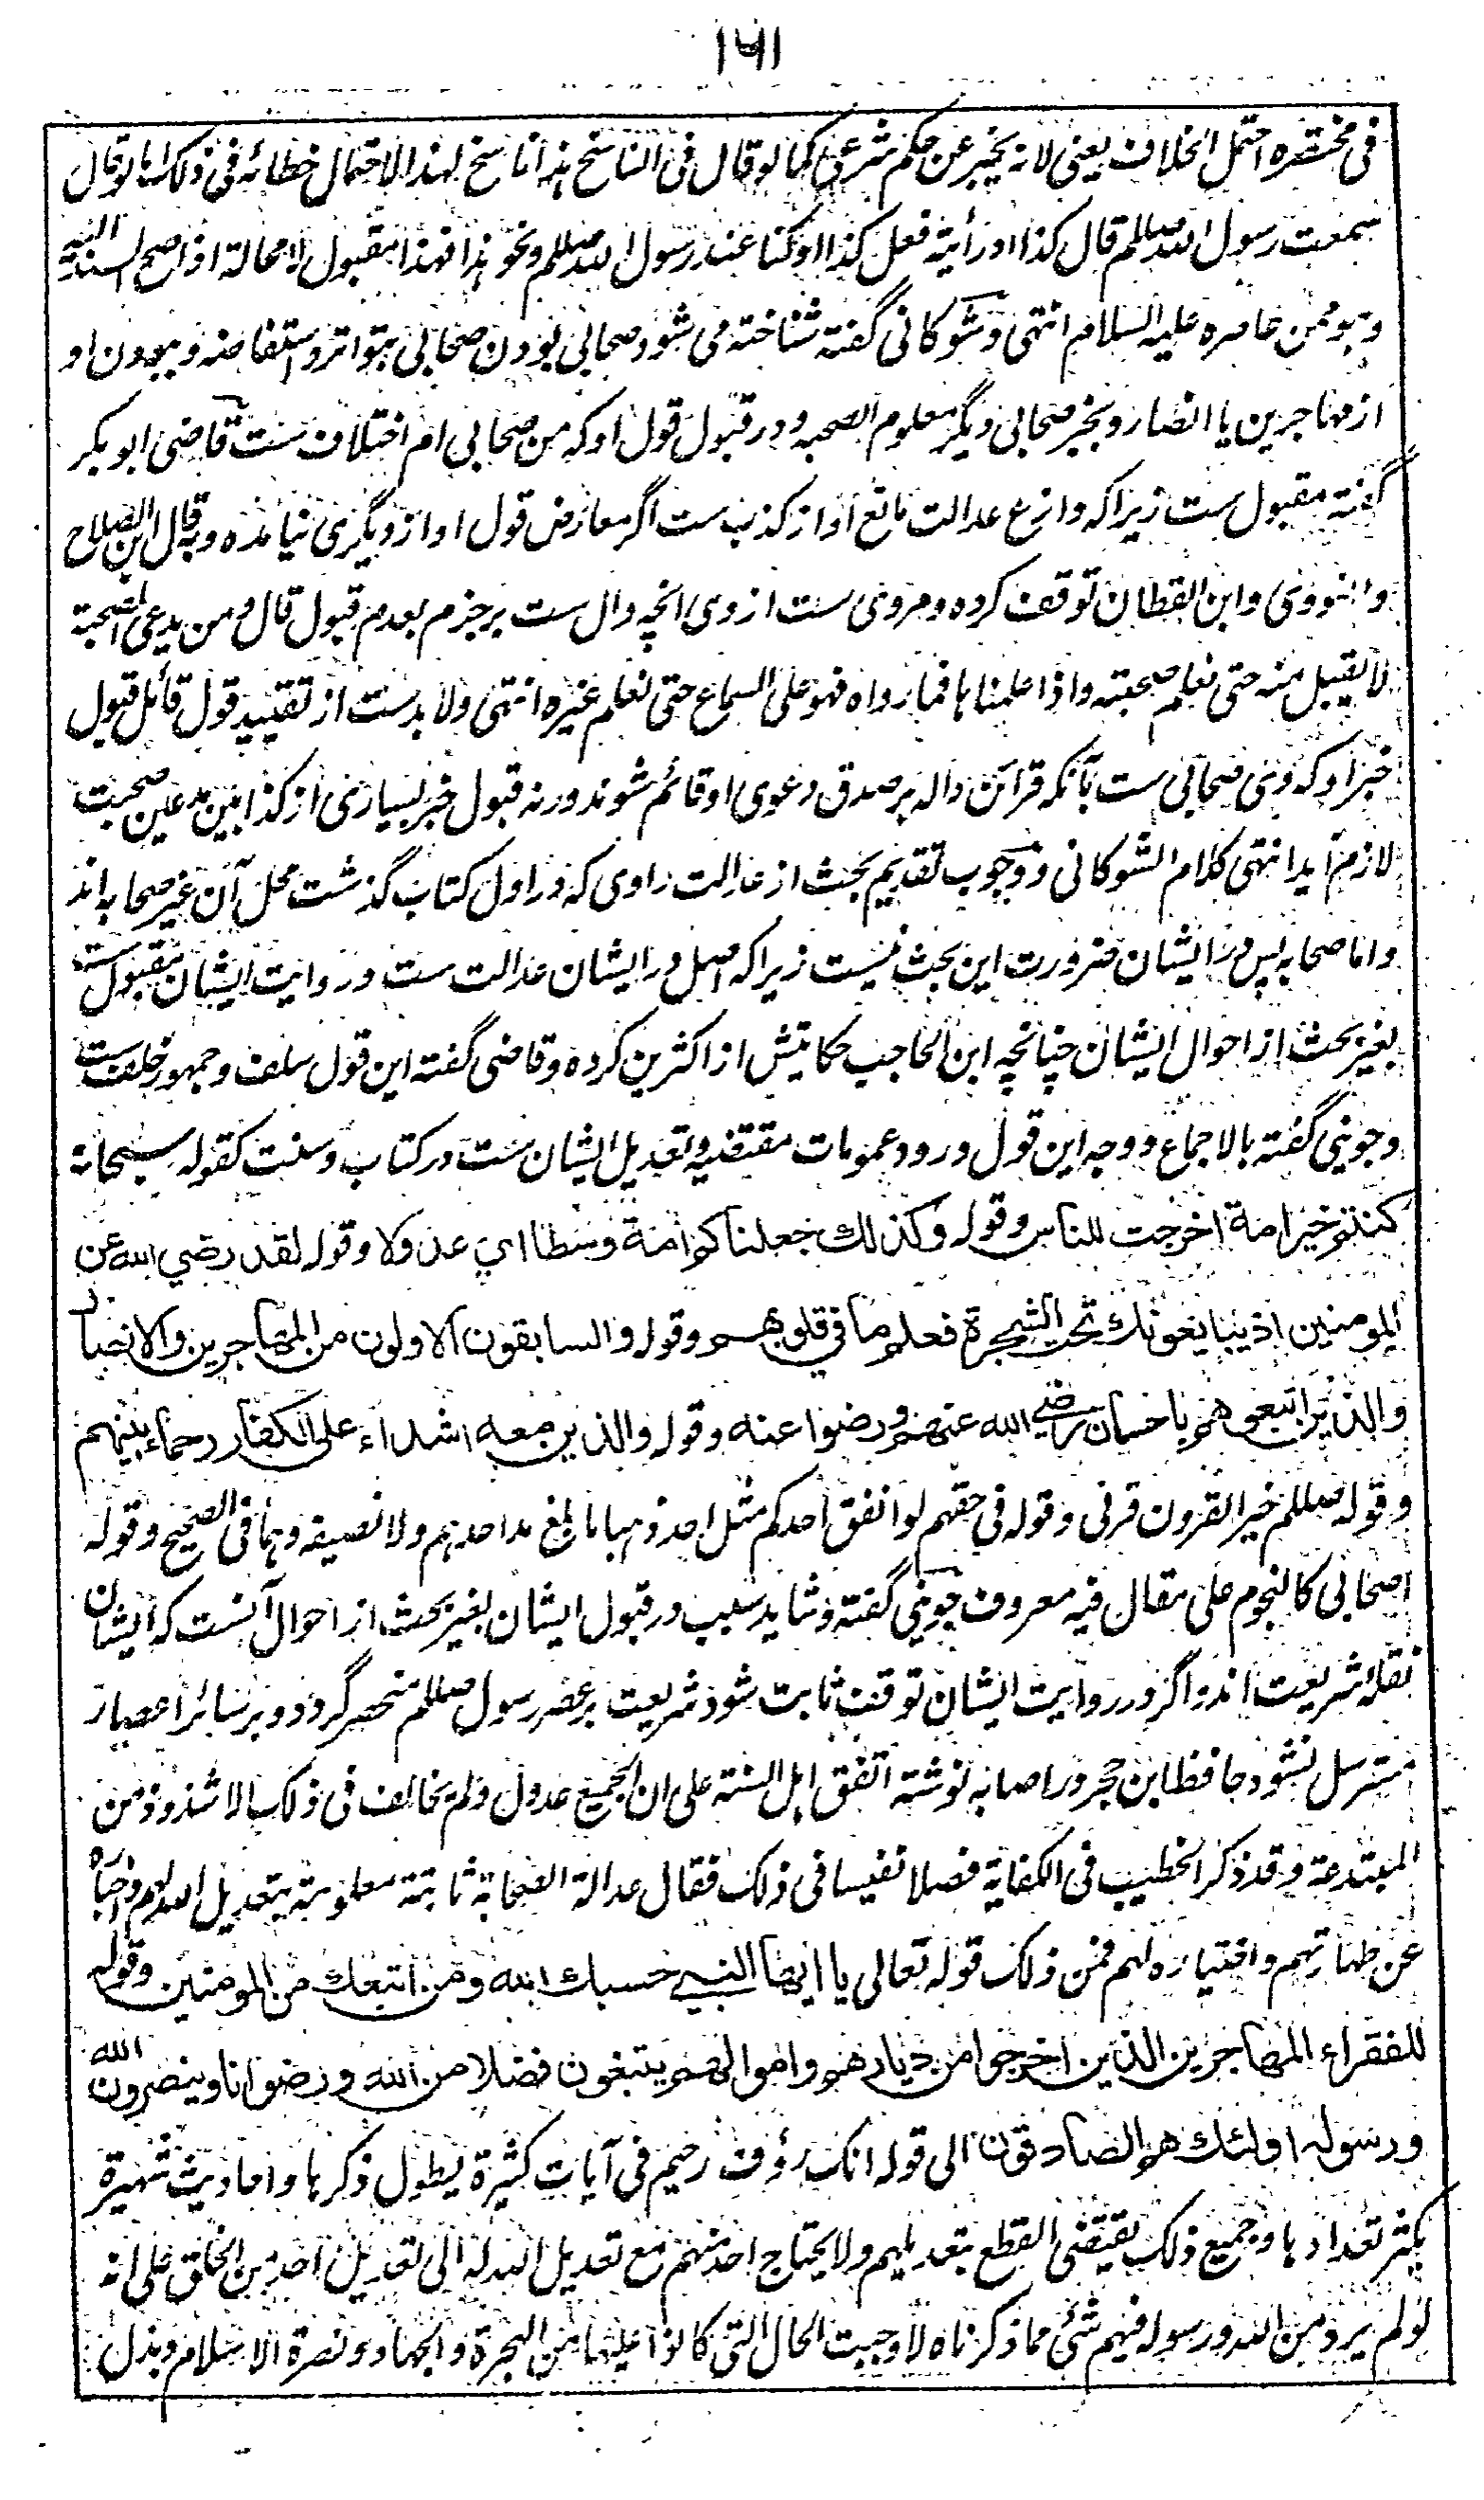 ۱۶۱
فی مختصره احتمل الخلاف یعنی لانه یخبر عن حکم شرعی کما لو قال فی الناسخ هذا ناسخ لهذا لاحتمال خطائه فی ذلک اما لو قال
سمعت رسول الله صللم قال کذا او رأیته فعل کذا او کنا عند رسول الله صللم ونحو هذا فهذا مقبول لا محالة اذا صح السند الیه
وهو ممن عاصره علیه السلام انتهی وشوکانی گفته شناخته می شود صحابی بودن صحابی بتواتر واستفاضه وببودن او
از مهاجرین یا انصار وبخبر صحابی دیگر معلوم الصحبه ودر قبول قول او که من صحابی ام اختلاف ست قاضی ابو بکر
گفته مقبول ست زیرا که وازع عدالت مانع او از کذب ست اگر معارض قول او از دیگری نیامده وبه قال ابن الصلاح
والنووی وابن القطان توقف کرده ومروی ست از وی انچه دال ست بر جزم بعدم قبول قال ومن یدعی الصحبة
لا یقبل منه حتی نعلم صحبته واذا علمناها فما رواه فهو علی السماع حتی نعلم غیره انتهی ولا بدست از تقیید قول قائل قبول
خبر او که وی صحابی ست بآنکه قرائن داله بر صدق دعوی او قائم شوند ورنه قبول خبر بسیاری از کذابین مدعین صحبت
لازم آید انتهی کلام الشوکانی ووجوب تقدیم بحث از عدالت راوی که در اول کتاب گذشت محل آن غیر صحابه اند
واما صحابه پس در ایشان ضرورت این بحث نیست زیرا که اصل در ایشان عدالت ست وروایت ایشان مقبول ست
بغیر بحث از احوال ایشان چنانچه ابن الحاجب حکایتش از اکثرین کرده وقاضی گفته این قول سلف وجمهور خلف ست
وجوینی گفته بالاجماع ووجه این قول ورود عمومات مقتضیه وتعدیل ایشان ست در کتاب وسنت کقوله سبحانه
کنتم خیر امة اخرجت للناس وقوله وکذلك جعلناکم امة وسطا ای عدولا وقوله لقد رضی الله عن
المومنین اذ یبایعونك تحت الشجرة فعلم ما فی قلوبهم وقوله والسابقون الاولون من المهاجرین والانصار
والذین اتبعوهم باحسان رضی الله عنهم ورضوا عنه وقوله والذین معه اشداء علی الکفار رحماء بینهم
وقوله صللم خیر القرون قرنی وقوله فی حقهم لو انفق احدکم مثل احد ذهبا ما بلغ مد احدهم ولا نصیفه وهما فی الصحیح وقوله
اصحابی کالنجوم علی مقال فیه معروف جوینی گفته وشاید سبب در قبول ایشان بغیر بحث از احوال آنست که ایشان
نقله شریعت اند واگر در روایت ایشان توقف ثابت شود شریعت بر عصر رسول صللم منحصر گردد وبر سائر اعصار
مسترسل نشود حافظ ابن حجر در اصابه نوشته اتفق اهل السنة علی ان الجمیع عدول ولم یخالف فی ذلک الا شذوذ من
المبتدعة وقد ذکر الخطیب فی الکفایة فصلا نفیسا فی ذلک فقال عدالة الصحابة ثابتة معلومة بتعدیل الله لهم واخباره
عن طهارتهم واختیاره لهم فمن ذلک قوله تعالی یا ایها النبی حسبك الله ومن اتبعك من المومنین وقوله
للفقراء المهاجرین الذین اخرجوا من دیارهم واموالهم یبتغون فضلا من الله ورضوانا وینصرون الله
ورسوله اولئك هم الصادقون الی قوله انک رؤوف رحیم فی آیات کثیرة یطول ذکرها واحادیث شهیرة
یکثر تعدادها وجمیع ذلک یقتضی القطع بتعدیلهم ولا یحتاج احد منهم مع تعدیل الله له الی تعدیل احد من الخلق علی انه
لو لم یرد من الله ورسوله فیهم شیٔ مما ذکرناه لاوجبت الحال التی کانوا علیها من الهجرة والجهاد ونصرة الاسلام وبذل